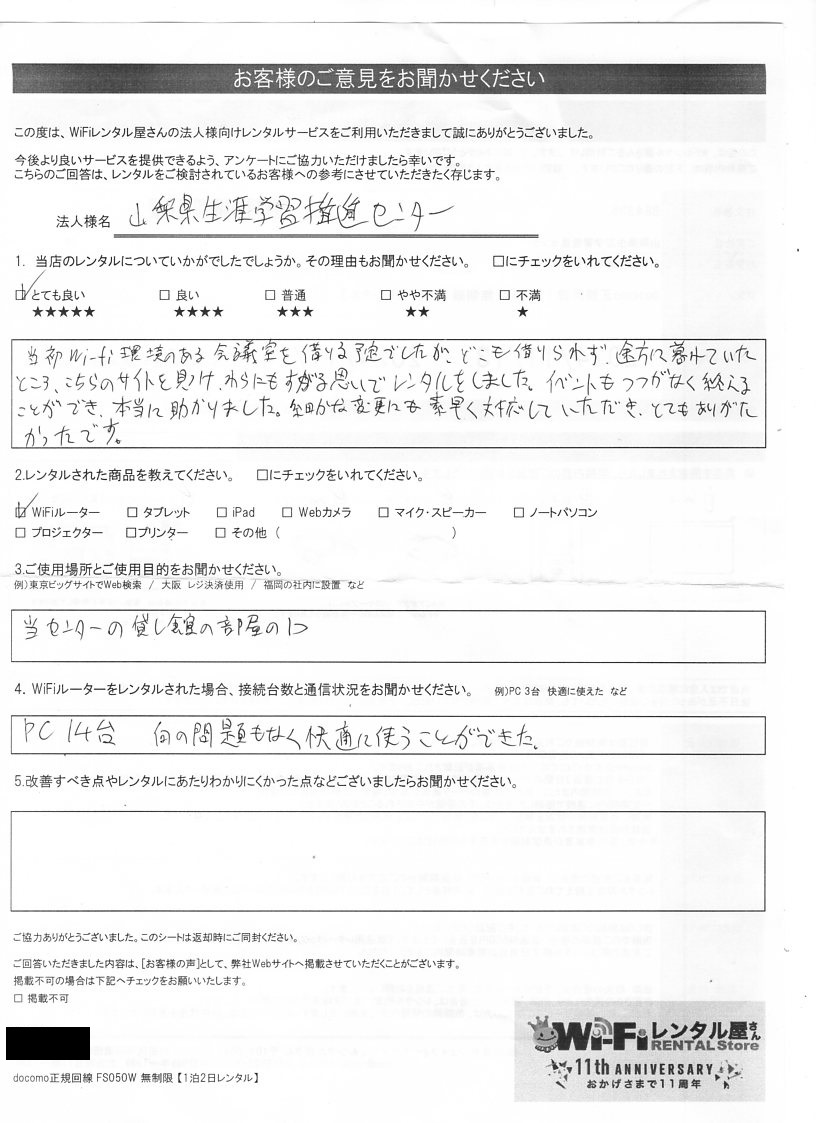 お客様のご意見をお聞かせください
この度は、WiFiレンタル屋さんの法人様向けレンタルサービスをご利用いただきまして誠にありがとうございました。
今後より良いサービスを提供できるよう、アンケートにご協力いただけましたら幸いです。
こちらのご回答は、レンタルをご検討されているお客様への参考にさせていただきたく存じます。
法人様名 山梨県生涯学習推進センター
1. 当店のレンタルについていかがでしたでしょうか。その理由もお聞かせください。 □にチェックをいれてください。
☑とても良い □ 良い □ 普通 □ やや不満 □ 不満
★★★★★ ★★★★ ★★★ ★★ ★
当初Wi-fi環境のある会議室を借りる予定でしたが、どこも借りられず、途方に暮れていた
ところ、こちらのサイトを見つけ、わらにもすがる思いでレンタルをしました。イベントもつつがなく終える
ことができ、本当に助かりました。細かな変更にも素早く対応していただき、とてもありがた
かったです。
2.レンタルされた商品を教えてください。 □にチェックをいれてください。
☑ WiFiルーター □ タブレット □ iPad □ Webカメラ □ マイク・スピーカー □ ノートパソコン
□ プロジェクター □プリンター □ その他 ( )
3.ご使用場所とご使用目的をお聞かせください。
例)東京ビッグサイトでWeb検索 / 大阪 レジ決済使用 / 福岡の社内に設置 など
当センターの貸し館の部屋の1つ
4. WiFiルーターをレンタルされた場合、接続台数と通信状況をお聞かせください。 例)PC 3台 快適に使えた など
PC 14台 何の問題もなく快適に使うことができた。
5.改善すべき点やレンタルにあたりわかりにくかった点などございましたらお聞かせください。
ご協力ありがとうございました。このシートは返却時にご同封ください。
ご回答いただきました内容は、[お客様の声]として、弊社Webサイトへ掲載させていただくことがございます。
掲載不可の場合は下記へチェックをお願いいたします。
□ 掲載不可
Wi-Fiレンタル屋さん
RENTAL Store
11th ANNIVERSARY
おかげさまで11周年
docomo正規回線 FS050W 無制限【1泊2日レンタル】